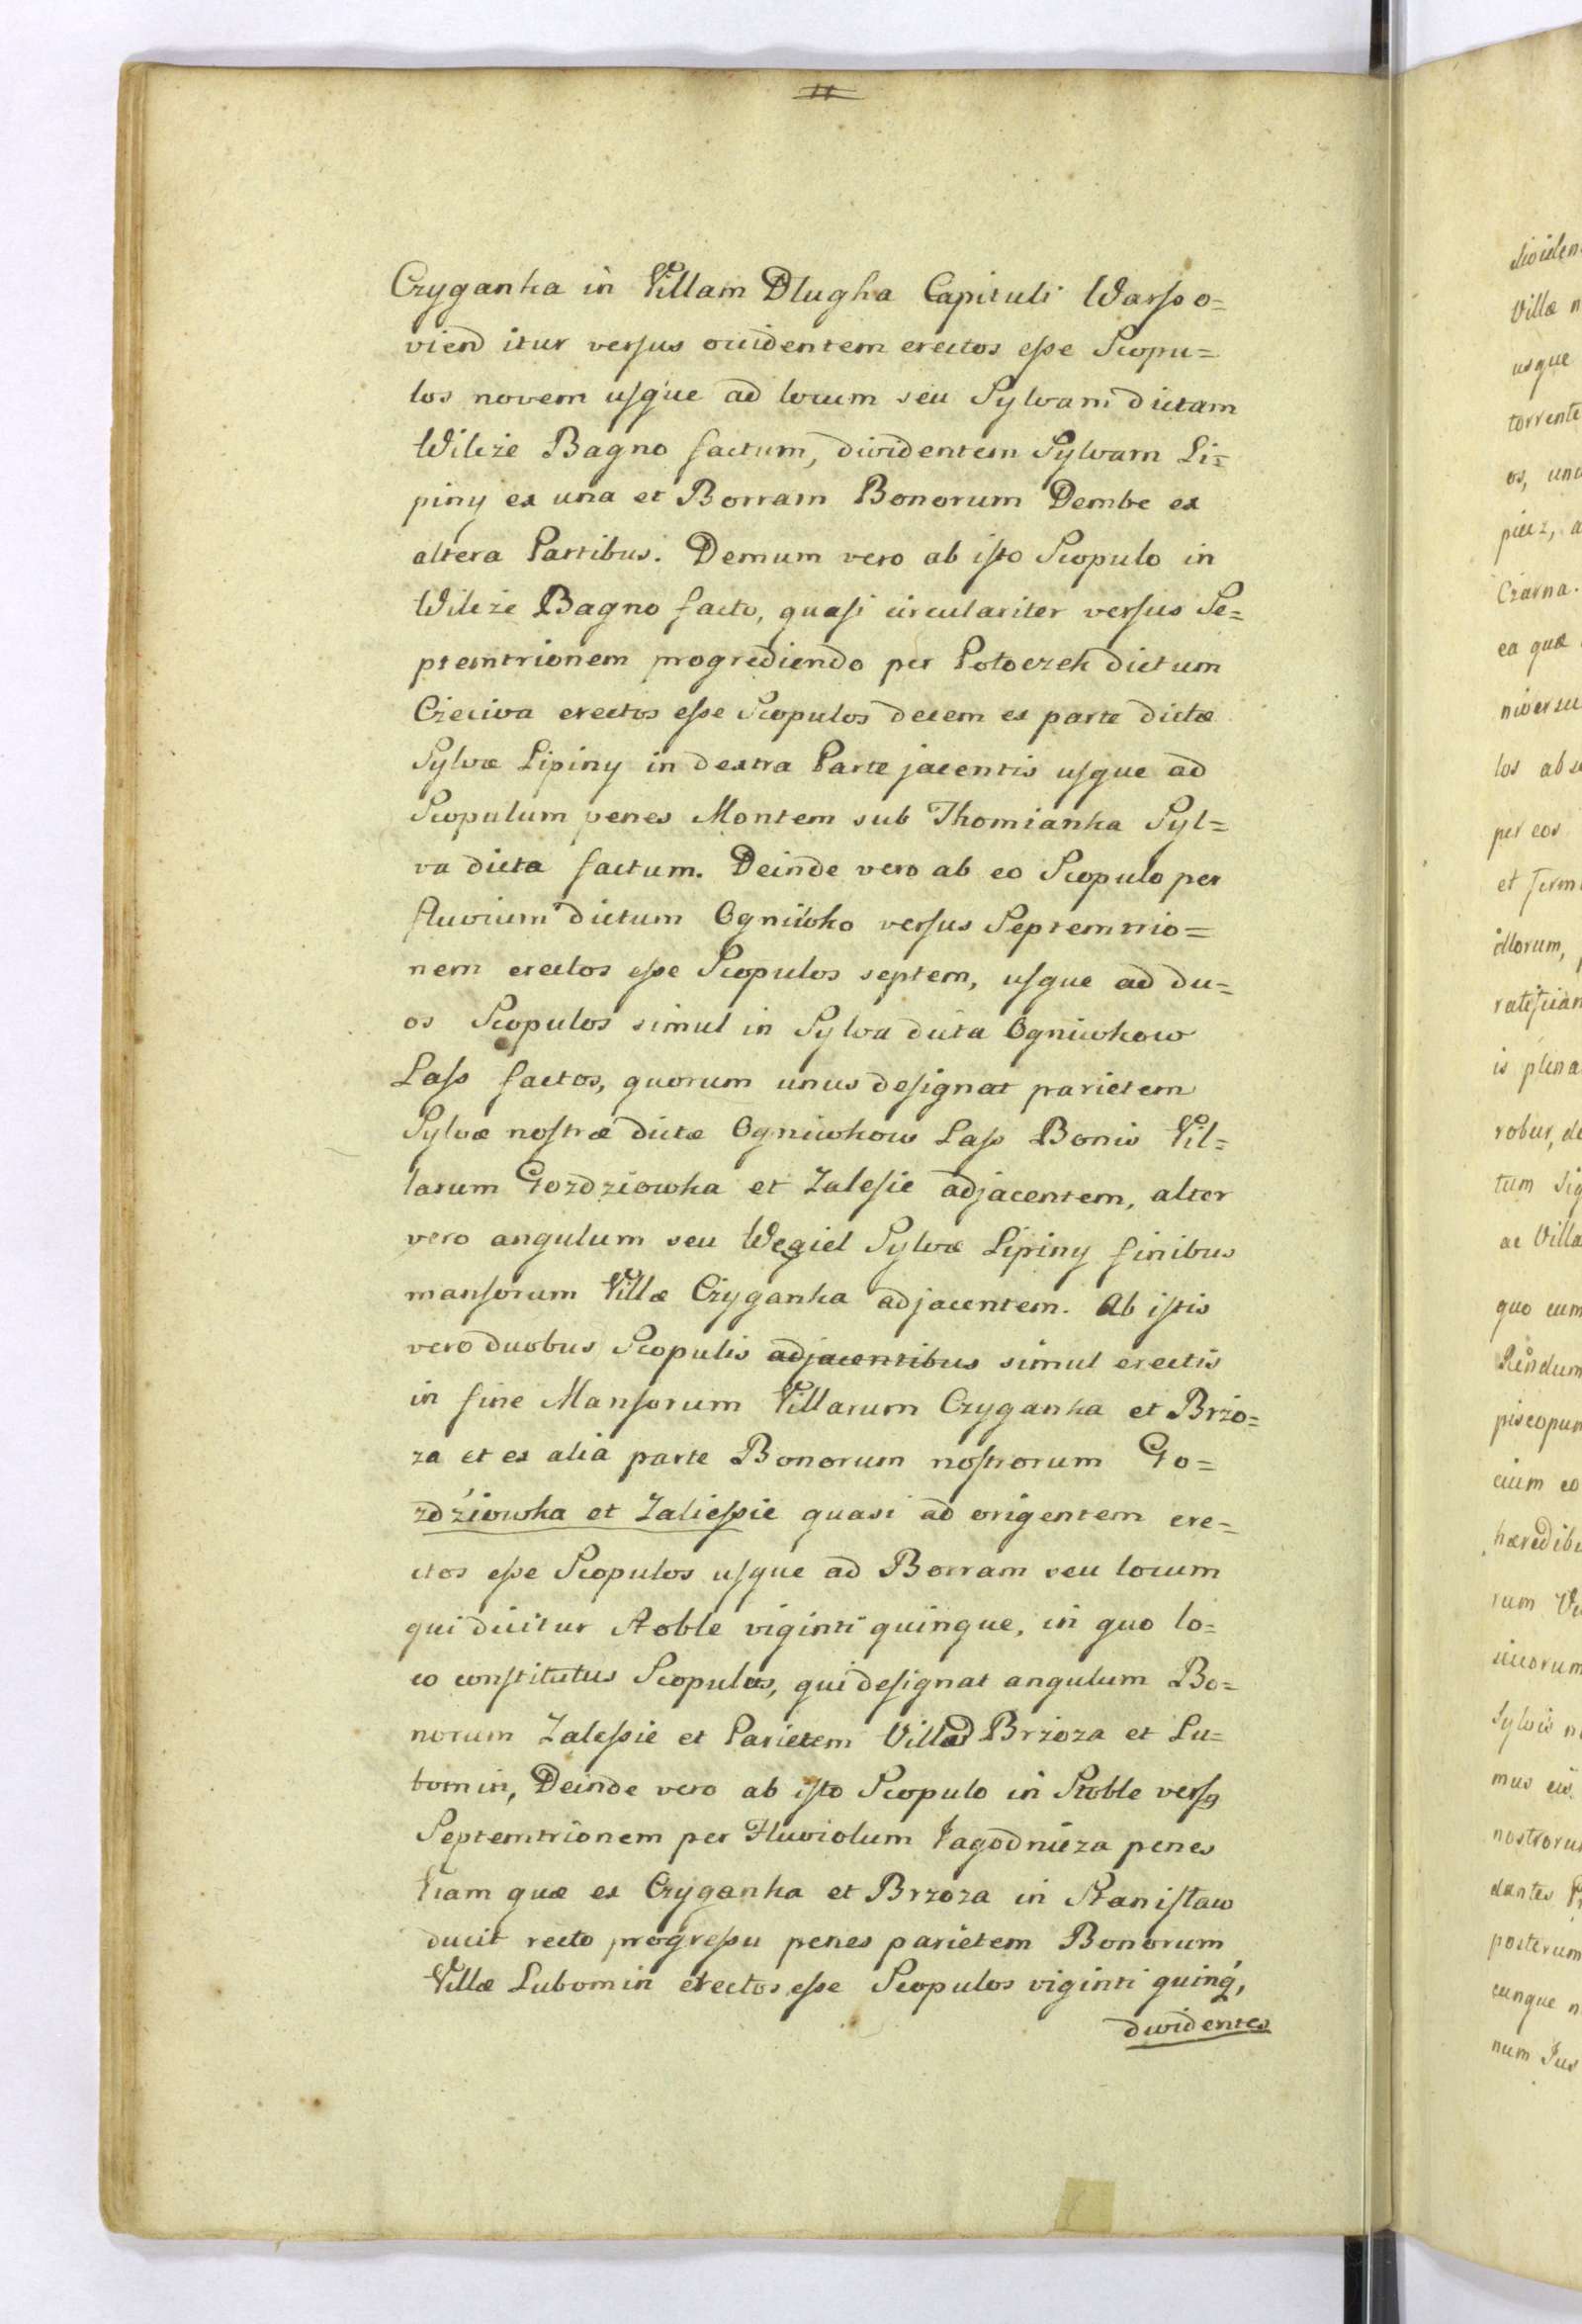 11
Czyganka in Villam Dlugka Capituli Warſso=
viens itur verſus occidentem erectos eſse Scopu=
los novem uſque ad locum seu Sylvam dictam
Wilcże Bagno factum, dividentem Sylvam Li=
piny ex una et Borram Bonorum Dembe ex
altera Partibus. Demum vero ab iſto Scopulo in
Wilcże Bagno facto, quaſi circulariter verſus Se=
ptemtrionem progrediendo per Potoczek dictum
Czeciva erectos eſse Scopulos decem ex parte dictæ
Sylvæ Lipiny in dextra Parte jacentis uſque ad
Scopulum penes Montem sub Thomianka Syl=
va dicta factum. Deinde vero ab eo Scopulo per
fluvium dictum Ogniwko verſus Septemtrio=
nem erectos eſse Scopulos septem, uſque ad du=
os Scopulos simul in Sylva dicta Ogniwkow
Laſs factos, quorum unus deſignat parietem
Sylvæ noſtræ dictæ Ogniwkow Laſs Bonis Vil=
larum Gozdziowka et Zaleſie adjacentem, alter
vero angulum seu Wegiel Sylvæ Lipiny finibus
manſorum Villæ Czyganka adjacentem. Ab iſtis
vero duobus Scopulis adjacentibus simul erectis
in fine Manſorum Villarum Czyganka et Brzo=
za et ex alia parte Bonorum noſtrorum Go=
zdźiowka et Zalieſsie quasi ad origentem ere=
ctos eſse Scopulos uſque ad Borram seu locum
qui dicitur Stoble viginti quinque, in quo lo=
co conſtitutus Scopulus, qui deſignat angulum Bo=
norum Zaleſsie et Parietem Villar Brzoza et Lu=
bomin, Deinde vero ab iſto Scopulo in Stoble verſ9
Septemtrionem per Fluviolum Jagodnicza penes
Viam quæ ex Czyganka et Brzoza in Staniſław
ducit recto progreſsu penes parietem Bonorum
Villæ Lubomin erectos eſse Scopulos viginti quinq́,
dividentes
dividen
Villæ n
usque
torrente
os, una
piecz, a
Czarna.
ea quæ
niversu
los ab
per eos
et Term
illorum,
ratifican
is plena
robur, de
tum Sig
ac Villa
quo cum
piscopum
cium eo
hæredibu
rum Vi
Sylvis n
mus eis
nostroru
dantes P
posterum
cunque n
num Jus